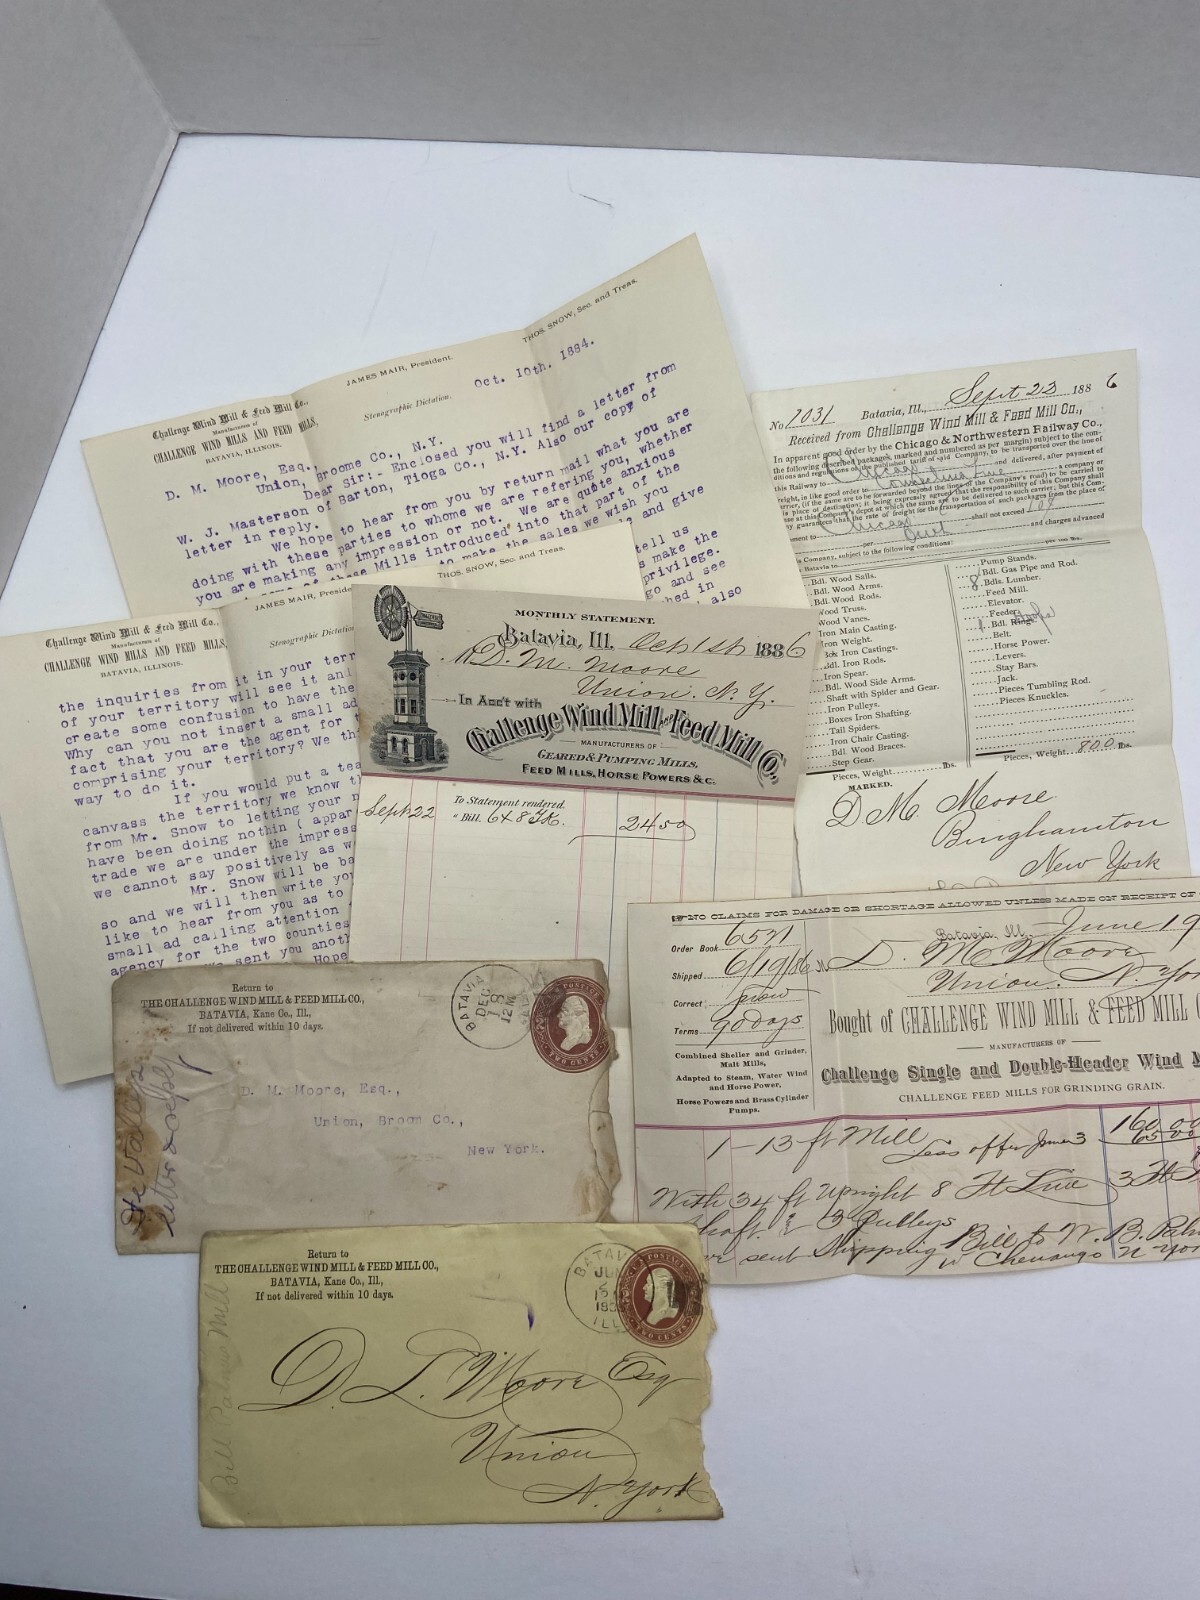 JAMES MAIR, President.
THOS. SNOW, Sec. and Treas.
Challenge Wind Mill & Feed Mill Co.,
Manufacturers of
CHALLENGE WIND MILLS AND FEED MILLS,
BATAVIA, ILLINOIS.
Stenographic Dictation.
Oct. 10th. 1884.
D. M. Moore, Esq.,
Union, Broome Co., N.Y.
Dear Sir:- Enclosed you will find a letter from
W. J. Masterson of Barton, Tioga Co., N.Y. Also our copy of
letter in reply.
We hope to hear from you by return mail what you are
doing with these parties to whome we are refering you, whether
you are making any impression or not. We are quite anxious
these Mills introduced into that part of the
to make the sales we wish you
and give
tell us
s make the
privilege.
go and see
hed in
also
THOS. SNOW, Sec. and Treas.
JAMES MAIR, Pres
Challenge Wind Mill & Feed Mill Co.,
Manufacturers of
CHALLENGE WIND MILLS AND FEED MILLS,
BATAVIA, ILLINOIS.
Stenographic Dictation
the inquiries from it in your terr
of your territory will see it and
create some confusion to have the
Why can you not insert a small ad
fact that you are the agent for t
comprising your territory? We thi
way to do it.
If you would put a tea
canvass the territory we know th
from Mr. Snow to letting your n
have been doing nothin ( appar
trade we are under the impress
we cannot say positively as w
Mr. Snow will be ba
so and we will then write you
like to hear from you as to
small ad calling attention
agency for the two counties
sent you anoth
Hope
MONTHLY STATEMENT.
Batavia, Ill. Oct 1st 1886
D. M. Moore
Union. N. Y.
In Acc't with
Challenge Wind Mill and Feed Mill Co.,
MANUFACTURERS OF
GEARED & PUMPING MILLS,
FEED MILLS, HORSE POWERS & C.
To Statement rendered.
Sept 22 " Bill. 2450
No 7031 Batavia, Ill., Sept 23 1886
Received from Challenge Wind Mill & Feed Mill Co.,
In apparent good order by the Chicago & Northwestern Railway Co.,
the following described packages, marked and numbered as per margin) subject to the con-
this Railway to
Chicago
and delivered, after payment of
shall not exceed
Chicago
and charges advanced
Company, subject to the following conditions:
Batavia to
per 100 lbs.
Bdl. Wood Sails.
Bdl. Wood Arms.
Bdl. Wood Rods.
Wood Truss.
Wood Vanes.
Iron Main Casting.
Iron Weight.
Box Iron Castings.
Bdl. Iron Rods.
Iron Spear.
Bdl. Wood Side Arms.
Shaft with Spider and Gear.
Iron Pulleys.
Boxes Iron Shafting.
Tail Spiders.
Iron Chair Casting.
Bdl. Wood Braces.
Step Gear.
Pieces, Weight lbs.
Pump Stands.
Bdl. Gas Pipe and Rod.
8 Bdls. Lumber.
Feed Mill.
Elevator.
Feeder
1 Bdl.
Belt.
Horse Power.
Levers.
Stay Bars.
Jack.
Pieces Tumbling Rod.
Pieces Knuckles.
Pieces, Weight 800 lbs.
MARKED.
D M Moore
Binghamton
New York
NO CLAIMS FOR DAMAGE OR SHORTAGE ALLOWED UNLESS MADE ON RECEIPT OF
Order Book 6521
Shipped 6/19/86
Correct Snow
Terms 90 days
Combined Sheller and Grinder,
Malt Mills,
Adapted to Steam, Water Wind
and Horse Power,
Horse Powers and Brass Cylinder
Pumps.
Batavia, Ill., June 19
M D. M Moore
Union. N. Yo
Bought of CHALLENGE WIND MILL & FEED MILL C
MANUFACTURERS OF
Challenge Single and Double-Header Wind M
CHALLENGE FEED MILLS FOR GRINDING GRAIN.
1 - 13 ft Mill 160 00
Less offer June 3 65 00
With 34 ft Upright 8 ft Line
shaft & 3 Pulleys
sent Shipping Bill to W. B. Palm
W Chenango N York
Return to
THE CHALLENGE WIND MILL & FEED MILL CO.,
BATAVIA, Kane Co., Ill.,
If not delivered within 10 days.
BATAVIA
DEC
18
12 M
U.S. POSTAGE
TWO CENTS
D. M. Moore, Esq.,
Union, Broom Co.,
New York.
Return to
THE CHALLENGE WIND MILL & FEED MILL CO.,
BATAVIA, Kane Co., Ill.,
If not delivered within 10 days.
BATAVI
ILL
POSTAGE
TWO CENTS
Bill Palmers Mill
D L. Moore Esq
Union
N. York